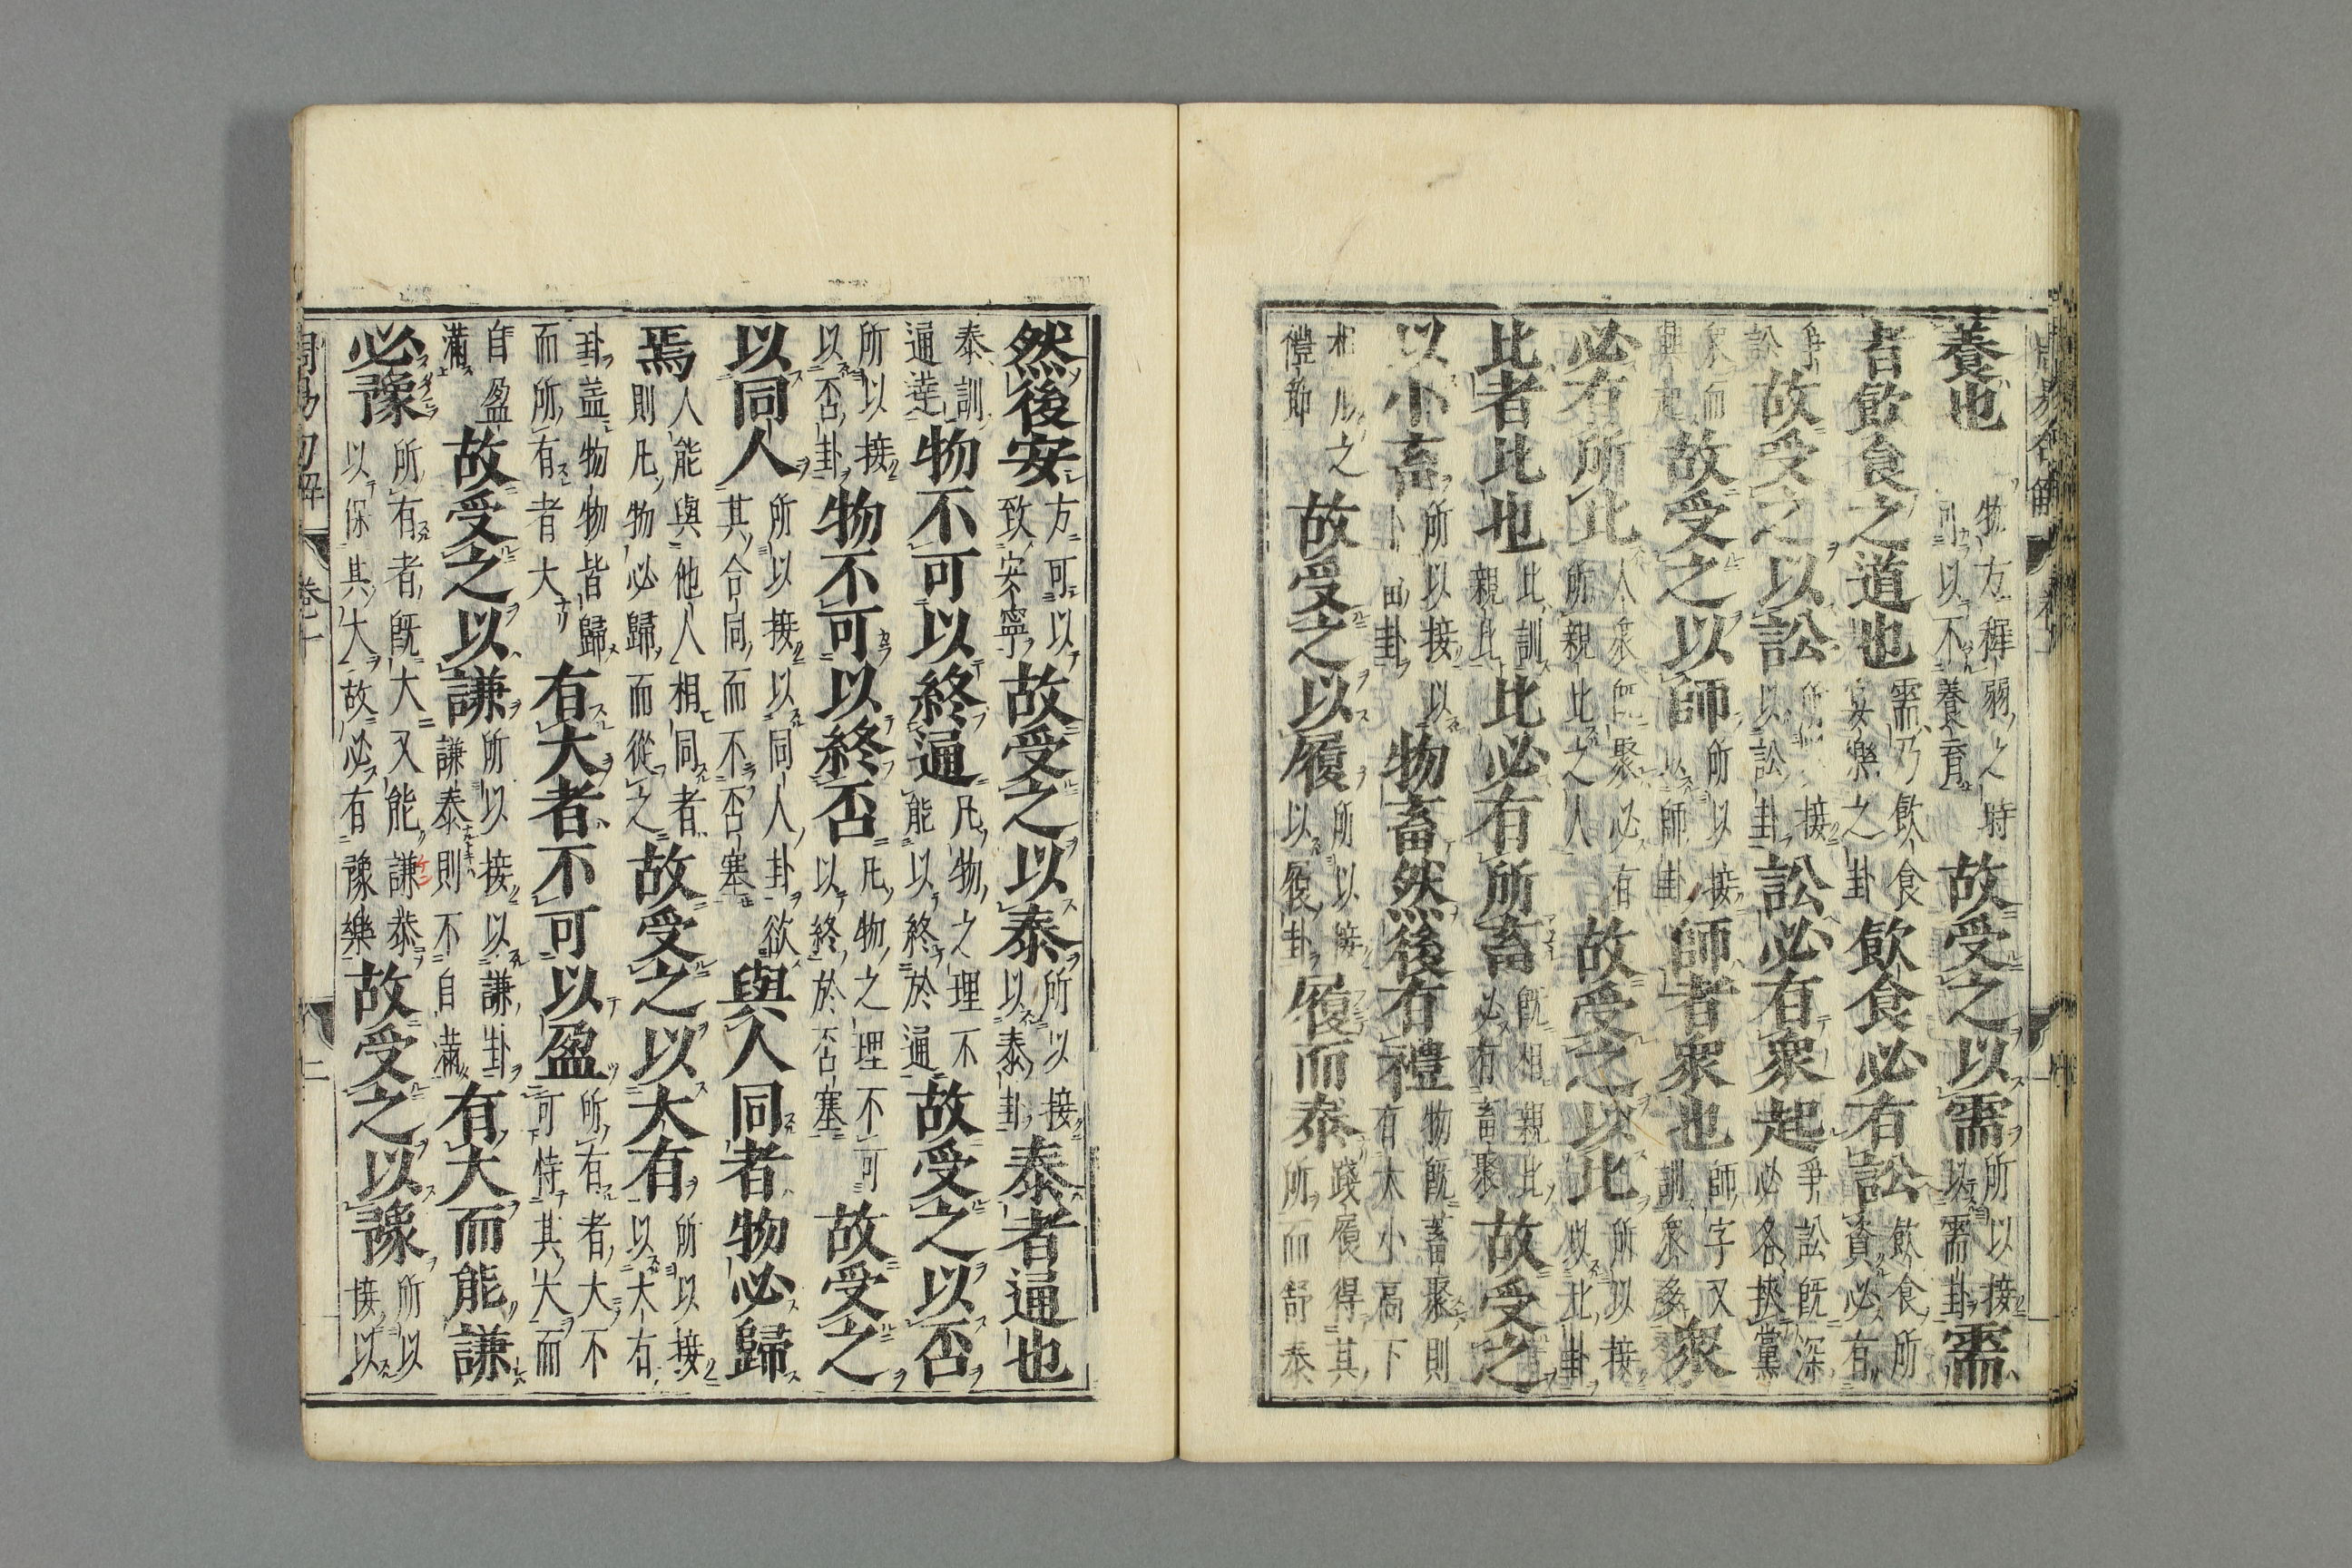 養也物方穉弱之時可以不養育故受之以需所以接以需卦需
者飲食之道也需乃飲食宴樂之卦飲食必有訟飲食所資必有
爭訟故受之以訟所以接以訟卦訟必有衆起爭訟既深必各挾黨
衆而興起故受之以師所以接以師卦師者衆也師字又訓衆多衆
必有所比人衆既聚必有所親比之人故受之以比所以接以比卦
比者比也比訓親比比必有所畜既相親比必有畜聚故受之
以小畜所以接以小畜卦物畜然後有禮物既畜聚則有大小高下
相之禮節故受之以履所以接以履卦履而泰踐履得其所而舒泰
然後安方可以致安寧故受之以泰所以接以泰卦泰者通也
泰訓通達物不可以終通凡物之理不能以終於通故受之以否
所以接以否卦物不可以終否凡物之理不可以終於否塞故受之
以同人所以接以同人卦欲其合同而不否塞與人同者物必歸
焉人能與他人相同者則凡物必歸而從之故受之以大有所以接以大有
卦盖物物皆歸而所有者大有大者不可以盈所有者大不可恃其大而
自盈滿故受之以謙所以接以謙卦謙泰則不自滿有大而能謙
必豫所有者既大又能謙恭以保其大故必有豫樂故受之以豫所以接以
周易句解 卷十 二